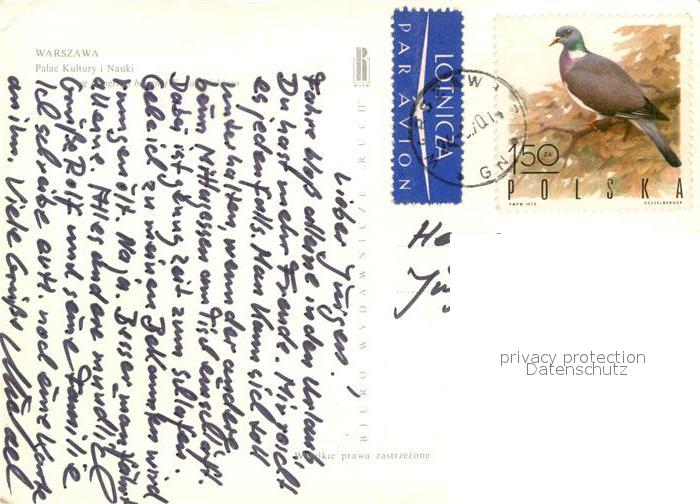 WARSZAWA
Pałac Kultury i Nauki
LOTNICZA
PAR AVION
1.50 ZŁ
POLSKA
PWPW 1970
HESSELBARGER
BIURO WYDAWNICZE „RUCH"
Wszelkie prawa zastrzeżone
Lieber Jürgen!
Fahre bloß alleine in den Urlaub
Du hast mehr Freude. Mir geht
es jedenfalls. Man kann sich toll
unterhalten, wenn der andere
beim Mittagessen am Tisch einschläft.
Dabei ist genug Zeit zum schlafen.
Gebe ich zu meinen Bekannten wird
nur gewölt. Naja. Besser man fährt
alleine. Alles andere mündlich
Grüße Rolf und seine Familie
Ich schreibe auch noch eine Karte
an ihn. Viele Grüße Michael
privacy protection
Datenschutz